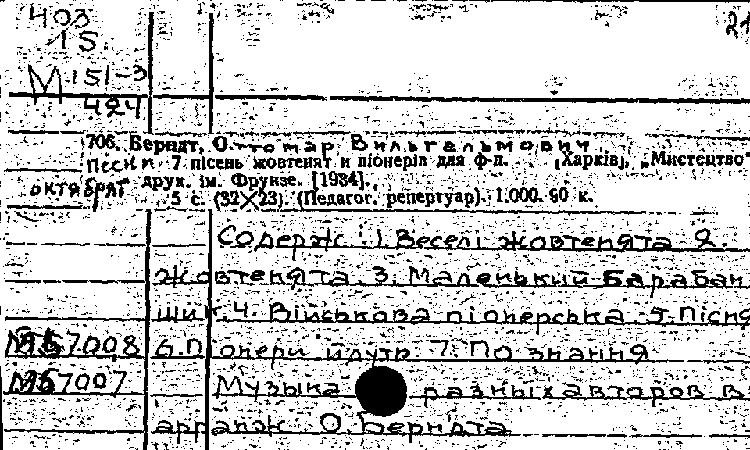 403
15
21
М 151-3
424
706. Берндт, Оттомар Вильгельмович.
Песни 7 пісень жовтенят и піонерів для ф-п. [Харків], „Мистецтво"
октябрят друк. ім. Фрунзе. [1934].
5 с. (32×23). (Педагог. репертуар). 1.000. 90 к.
Содерж: 1. Веселі жовтенята 2.
жовтенята. 3. Маленький барабан
щик. 4. Військова піонерська 5. Пісня
М57008 6. Піонери йдуть 7. По знання
М57007 Музыка разных авторов в
аранж О. Берндта